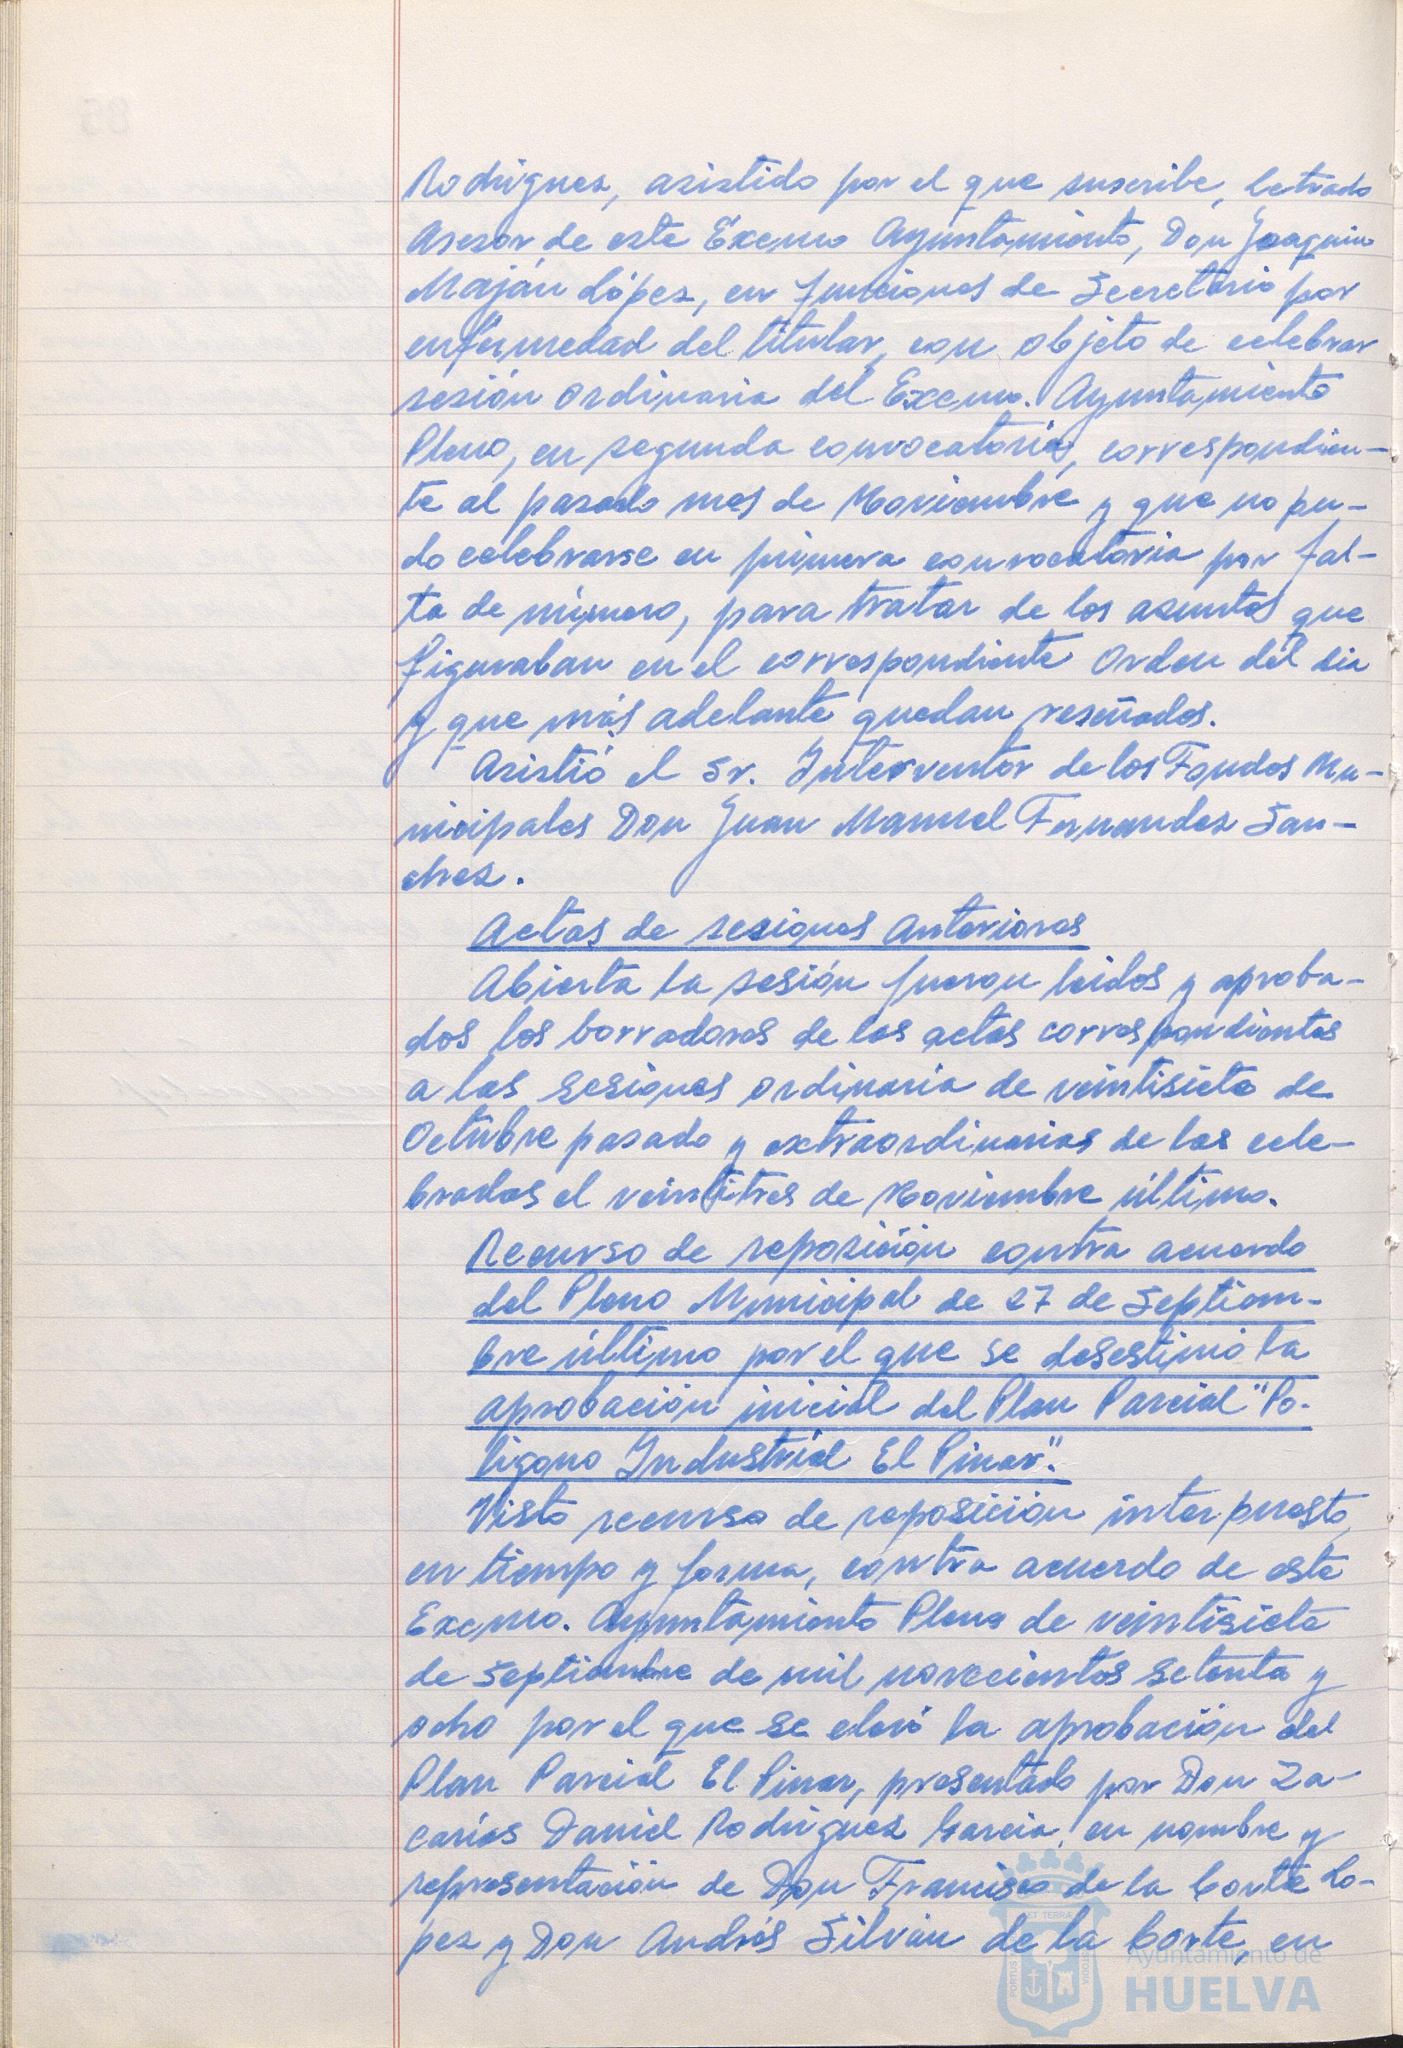 Rodriguez, asistido por el que suscribe, Letrado
Asesor de este Excmo Ayuntamiento, Don Joaquin
Maján López, en funciones de Secretario por
enfermedad del titular, con objeto de celebrar
sesión ordinaria del Excmo. Ayuntamiento
Pleno, en segunda convocatoria, correspondien-
te al pasado mes de Noviembre y que no pu-
do celebrarse en primera convocatoria por fal-
ta de número, para tratar de los asuntos que
figuraban en el correspondiente Orden del dia
y que más adelante quedan reseñados.
Asistió el Sr. Interventor de los Fondos Mu-
nicipales Don Juan Manuel Fernandez San-
chez.
Actas de sesiones anteriores
Abierta la sesión fueron leidos y aproba-
dos los borradores de las actas correspondientes
a las sesiones ordinaria de veintisiete de
Octubre pasado y extraordinarias de las cele-
bradas el veintitres de Noviembre último.
Recurso de reposición contra acuerdo
del Pleno Municipal de 27 de Septiem-
bre último por el que se desestimó la
aprobación inicial del Plan Parcial "Po-
ligono Industrial El Pinar".
Visto recurso de reposición interpuesto,
en tiempo y forma, contra acuerdo de este
Excmo. Ayuntamiento Pleno de veintisiete
de Septiembre de mil novecientos setenta y
ocho por el que se elevó la aprobación del
Plan Parcial El Pinar, presentado por Don Za-
carías Daniel Rodriguez Garcia, en nombre y
representación de Don Francisco de la Corte Lo-
pez y Don Andrés Silván de la Corte, en
Ayuntamiento de
HUELVA